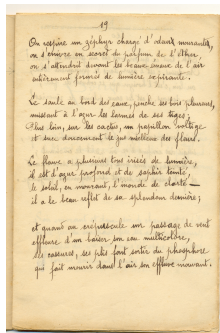 19
On respire un zéphyr chargé d'odeurs mourantes,
on s'enivre en secret du parfum de l'éther,
on s'attendrit devant les beaux émaux de l'air
entièrement formés de lumière expirante.
Le saule au bord des eaux, penche ses bois pleureurs,
mussant à l'azur les larmes de ses tiges;
Plus loin, sur les cactus, un papillon voltige
et suce doucement le jus mielleux des fleurs.
Le fleuve a plusieurs tons irisés de lumière,
il est d'azur profond et de saphir teinté,
le soleil, en mourant, l'inonde de clarté —
il a le beau reflet de sa splendeur dernière;
et quand au crépuscule un passage de vent
effleure d'un baiser son eau multicolore,
ses cassures, ses plis font sortir du phosphore
qui fait mourir dans l'air son effluve mouvant.